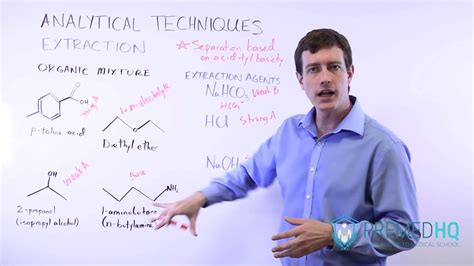 ANALYTICAL TECHNIQUES
EXTRACTION
☆ Separation based
on acidity/basicity
ORGANIC MIXTURE
EXTRACTION AGENTS
OH
Strong A
p-toluic acid
non-electrolyte
Diethyl ether
NaHCO3 Weak B
HCO3-
HCl Strong A
NaOH
OH
Weak A
2-propanol
(isopropyl alcohol)
Base
NH2
1-aminobutane
(n-butylamine)
PREMEDHQ
MEDICAL SCHOOL